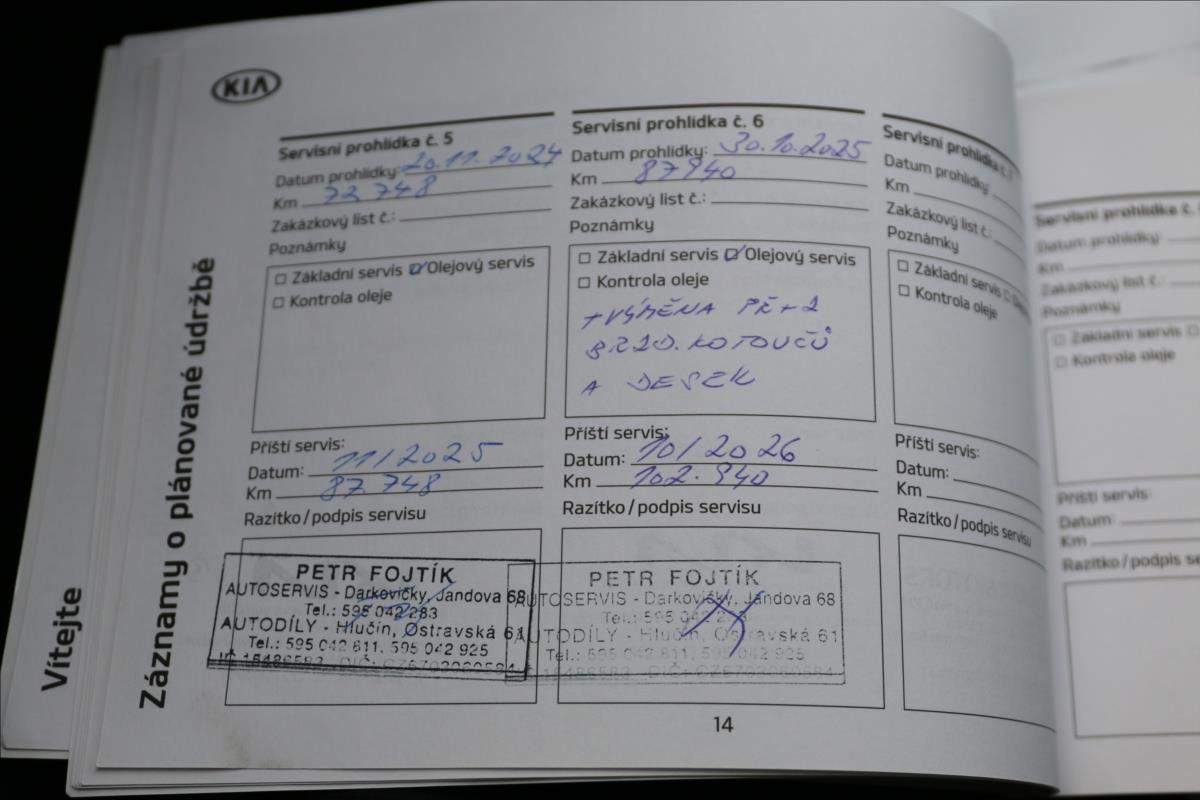 KIA
Vítejte
Záznamy o plánované údržbě
Servisní prohlídka č. 5
Datum prohlídky: 20.11.2024
Km 72 748
Zakázkový list č.:
Poznámky
Základní servis Olejový servis
Kontrola oleje
Příští servis:
Datum: 11/2025
Km 87 748
Razítko / podpis servisu
PETR FOJTÍK
AUTOSERVIS - Darkovičky, Jandova 68
Tel.: 595 042 283
AUTODÍLY - Hlučín, Ostravská 61
Tel.: 595 042 811, 595 042 925
Servisní prohlídka č. 6
Datum prohlídky: 30.10.2025
Km 87940
Zakázkový list č.:
Poznámky
Základní servis Olejový servis
Kontrola oleje
+ VÝMĚNA PŘ+Z
BRZD. KOTOUČŮ
A DESEK
Příští servis:
Datum: 10/2026
Km 102.940
Razítko / podpis servisu
PETR FOJTÍK
AUTOSERVIS - Darkovičky, Jandova 68
Tel.: 595 042
AUTODÍLY - Hlučín, Ostravská 61
Tel.: 595 042 811, 595 042 925
Servisní prohlídka č.
Datum prohlídky:
Km
Zakázkový list č.:
Poznámky
Základní servis
Kontrola oleje
Příští servis:
Datum:
Km
Razítko / podpis servisu
14
Servisní prohlídka č.
Datum prohlídky:
Km
Zakázkový list č.:
Poznámky
Základní servis
Kontrola oleje
Příští servis:
Datum:
Km
Razítko / podpis